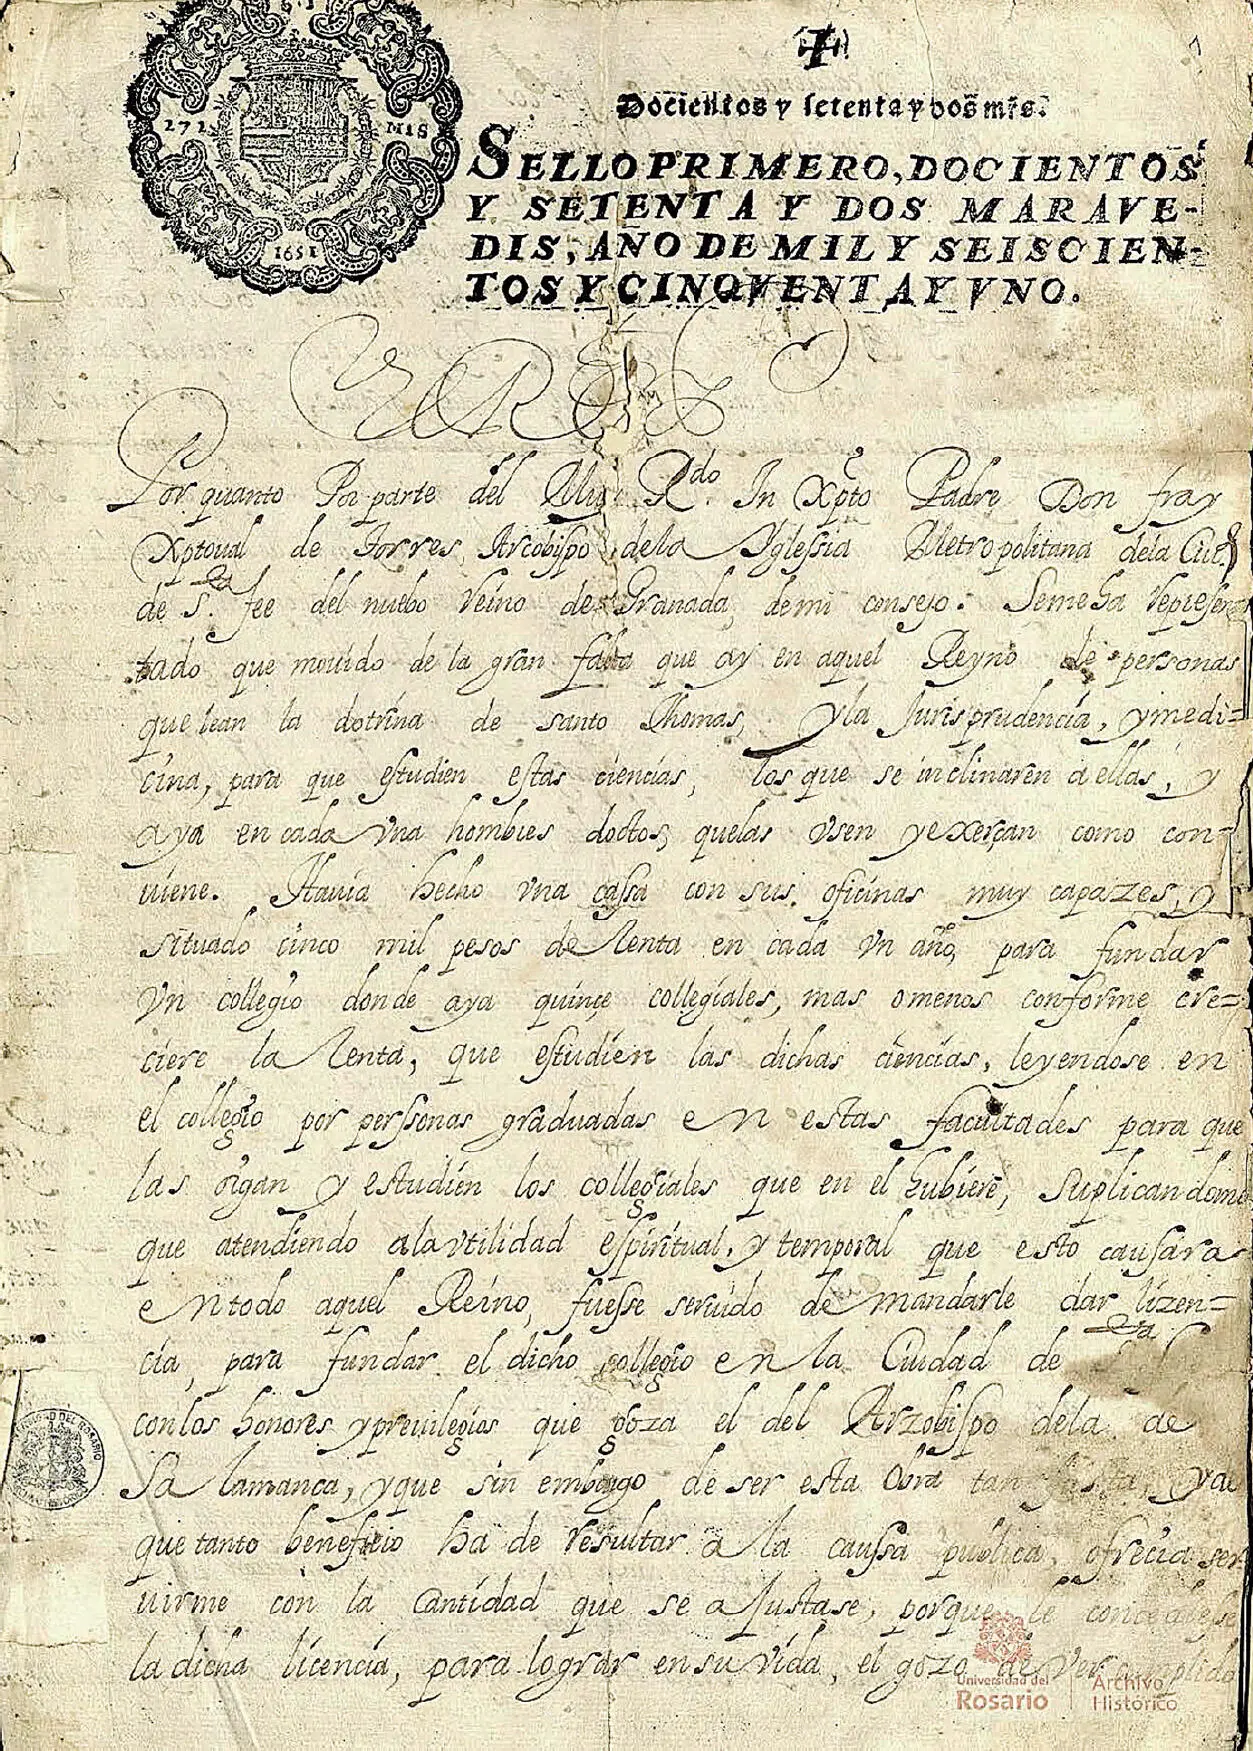 272 MIS
1651
Docientos y setenta y dos mrs.
SELLO PRIMERO, DOCIENTOS
Y SETENTA Y DOS MARAVE-
DIS, AÑO DE MIL Y SEISCIEN-
TOS Y CINQVENTA Y VNO.
EL REY
Por quanto Por parte del Muy Rdo. In Xpto Padre Don fray
Xptoual de Torres, Arcobispo dela Yglessia Metropolitana dela Ciud.
de S.ta fee del nuebo Reino de Granada, de mi consejo. Se me ha represen
tado que mouido de la gran falta que ay en aquel Reyno de personas
que lean la dotrina de santo Thomas, y la Jurisprudencia, y medi=
cina, para que estudien estas ciencias, los que se inclinaren a ellas, y
aya en cada vna hombres doctos, que las vsen y exerçan como con=
uiene. Hauia hecho vna cassa con sus oficinas muy capazes, y
situado cinco mil pesos de Renta en cada vn año, para fundar
vn collegio donde aya quinçe collegiales, mas o menos conforme cre=
ciere la Renta, que estudien las dichas ciencias, leyendose en
el collegio por perssonas graduadas en estas facultades para que
las oigan y estudien los collegiales que en el hubiere, suplicandome
que atendiendo ala vtilidad espiritual, y temporal que esto causara
en todo aquel Reino, fuesse seruido de mandarle dar lizen=
cia, para fundar el dicho collegio en la Ciudad de ta
con los honores y preuilegios que goza el del Arzobispo dela de
Salamanca, y que sin embargo de ser esta obra tan justa, y de
que tanto beneficio ha de resultar a la caussa publica, ofrecia ser
uirme con la cantidad que se ajustase, porque se le concediesse
la dicha licencia, para lograr en su vida, el gozo de ver cumplido
Universidad del
Rosario
Archivo
Histórico